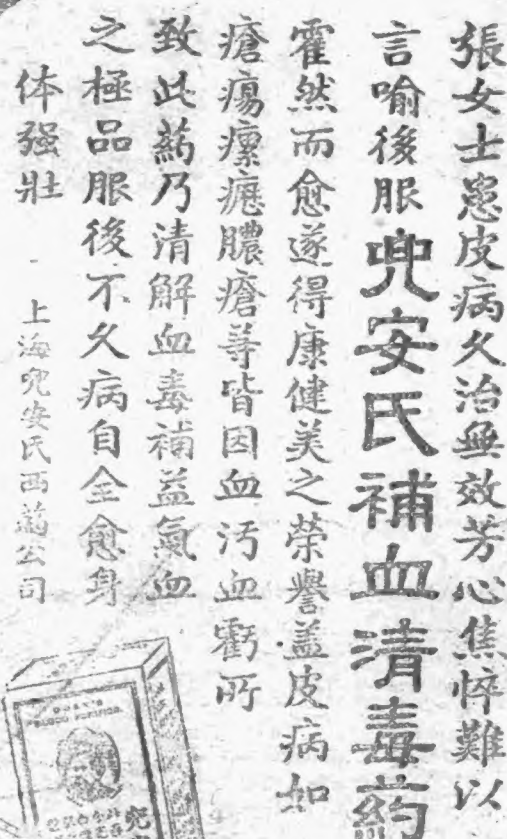 張女士患皮病久治無效芳心焦悴難以
言喻後服兜安氏補血清毒葯
霍然而愈遂得康健美之榮譽盖皮病如
瘡瘍瘰癧膿瘡等皆因血汚血虧所
致此葯乃清解血毒補益氣血
之極品服後不久病自全愈身
体强壯
上海兜安氏西葯公司
DOAN'S